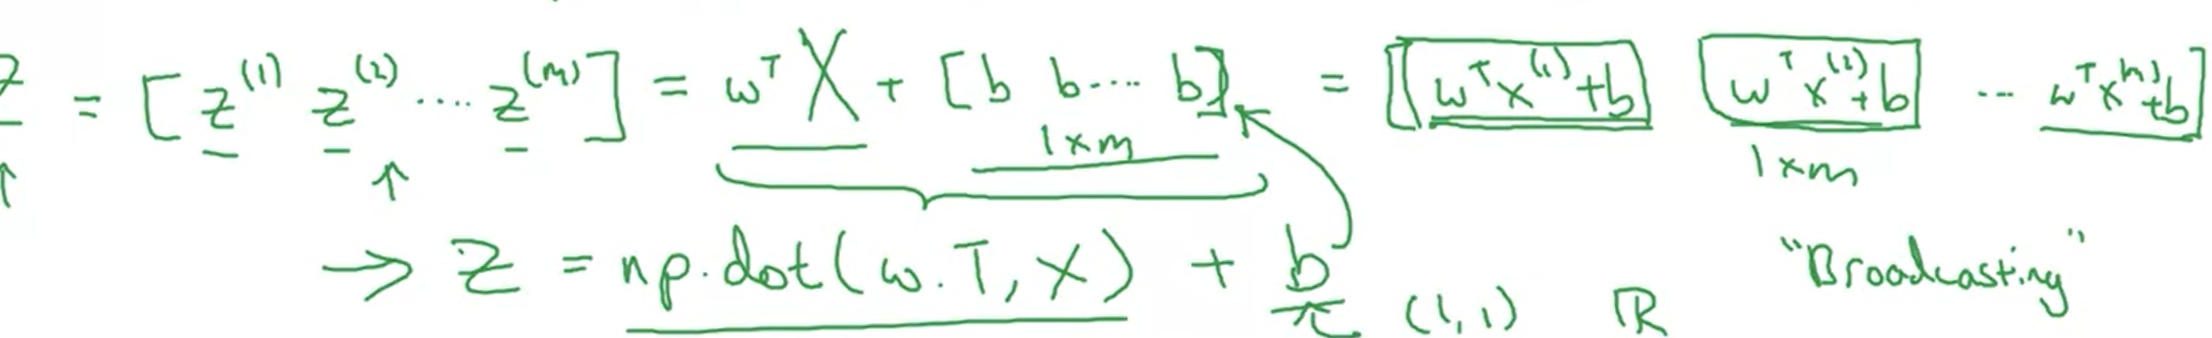 Z = [z^(1) z^(2) .... z^(m)] = w^T X + [b b.... b] = [w^T x^(1)+b w^T x^(2)+b ... w^T x^(m)+b]
1×m 1×m
→ Z = np.dot(w.T, X) + b (1,1) ℝ "Broadcasting"